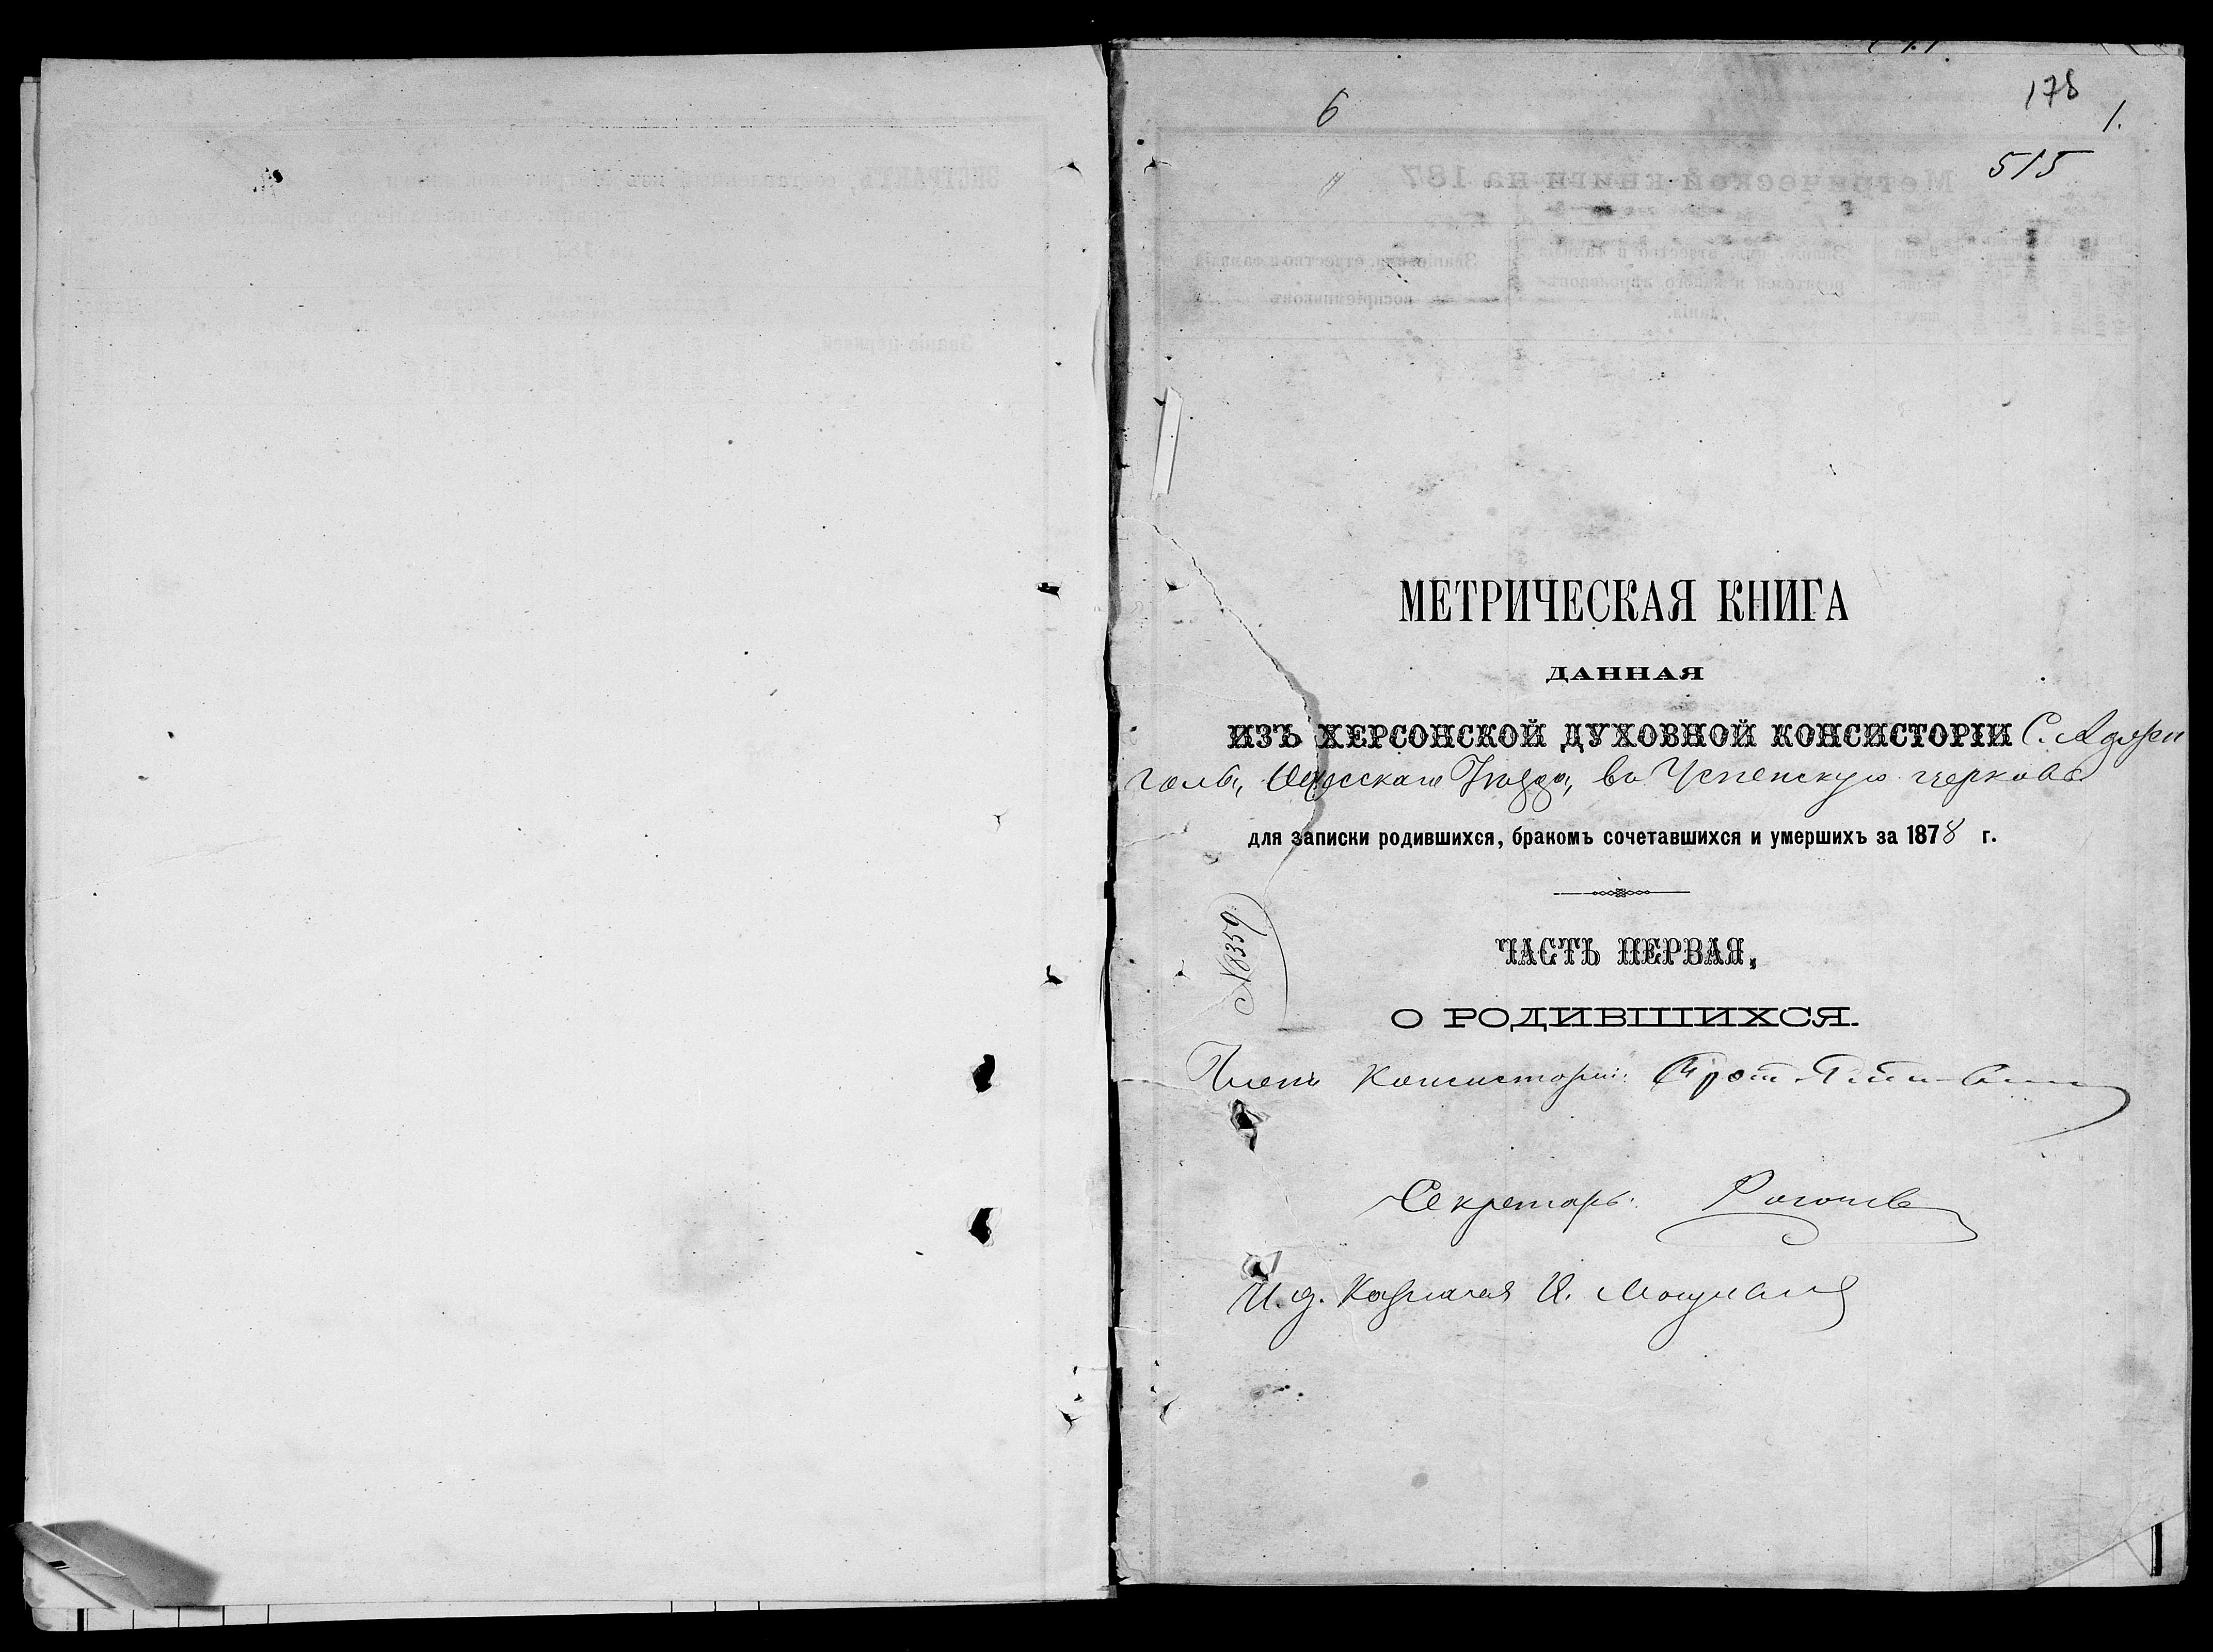 6
178
1.
515
МЕТРИЧЕСКАЯ КНИГА
ДАННАЯ
ИЗЪ ХЕРСОНСКОЙ ДУХОВНОЙ КОНСИСТОРІИ С. Аджи
голъ, Одесскаго Уѣзда, въ Успенскую церковь
для записки родившихся, бракомъ сочетавшихся и умершихъ за 1878 г.
№8359
ЧАСТЬ ПЕРВАЯ,
О РОДИВШИХСЯ.
Членъ Консисторіи: Прот.
Секретарь:
И. д. Казначея И.